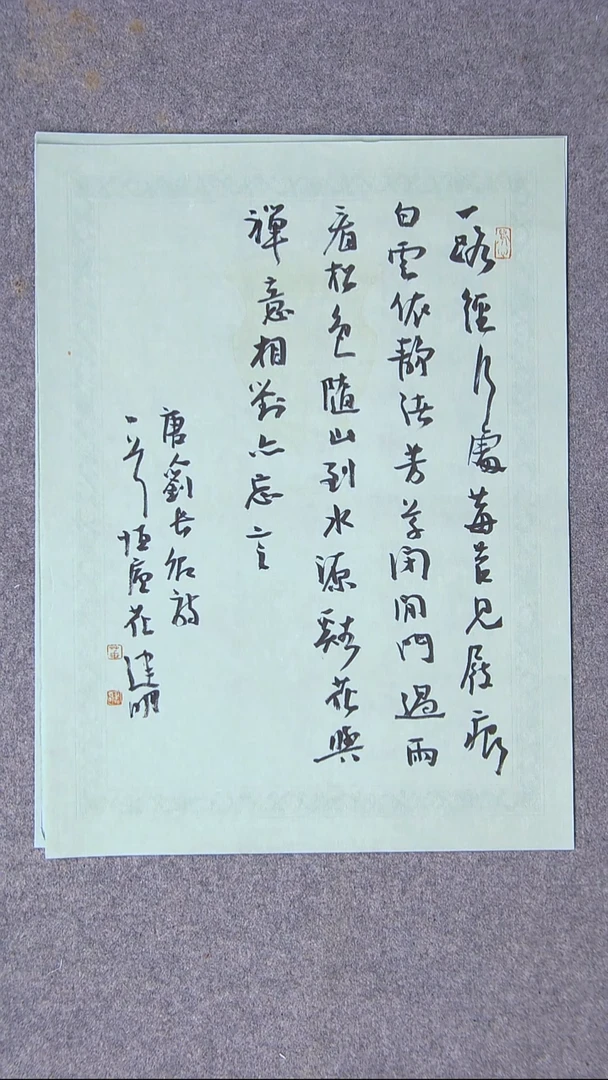 一路經行處莓苔見屐痕
白雲依靜渚芳草閉閒門過雨
看松色隨山到水源谿花與
禪意相對亦忘言
唐人劉長卿詩
一首 恒廬 建明